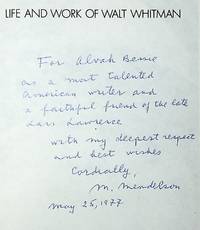 LIFE AND WORK OF WALT WHITMAN
For Alvah Bessie
as a most talented
American writer and
a faithful friend of the late
Lars Lawrence
with my deepest respect
and best wishes
Cordially,
M. Mendelson
May 25, 1977